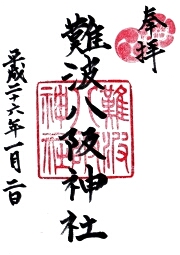 奉拝
難波八阪神社
難波八阪神社
平成二十六年一月二日